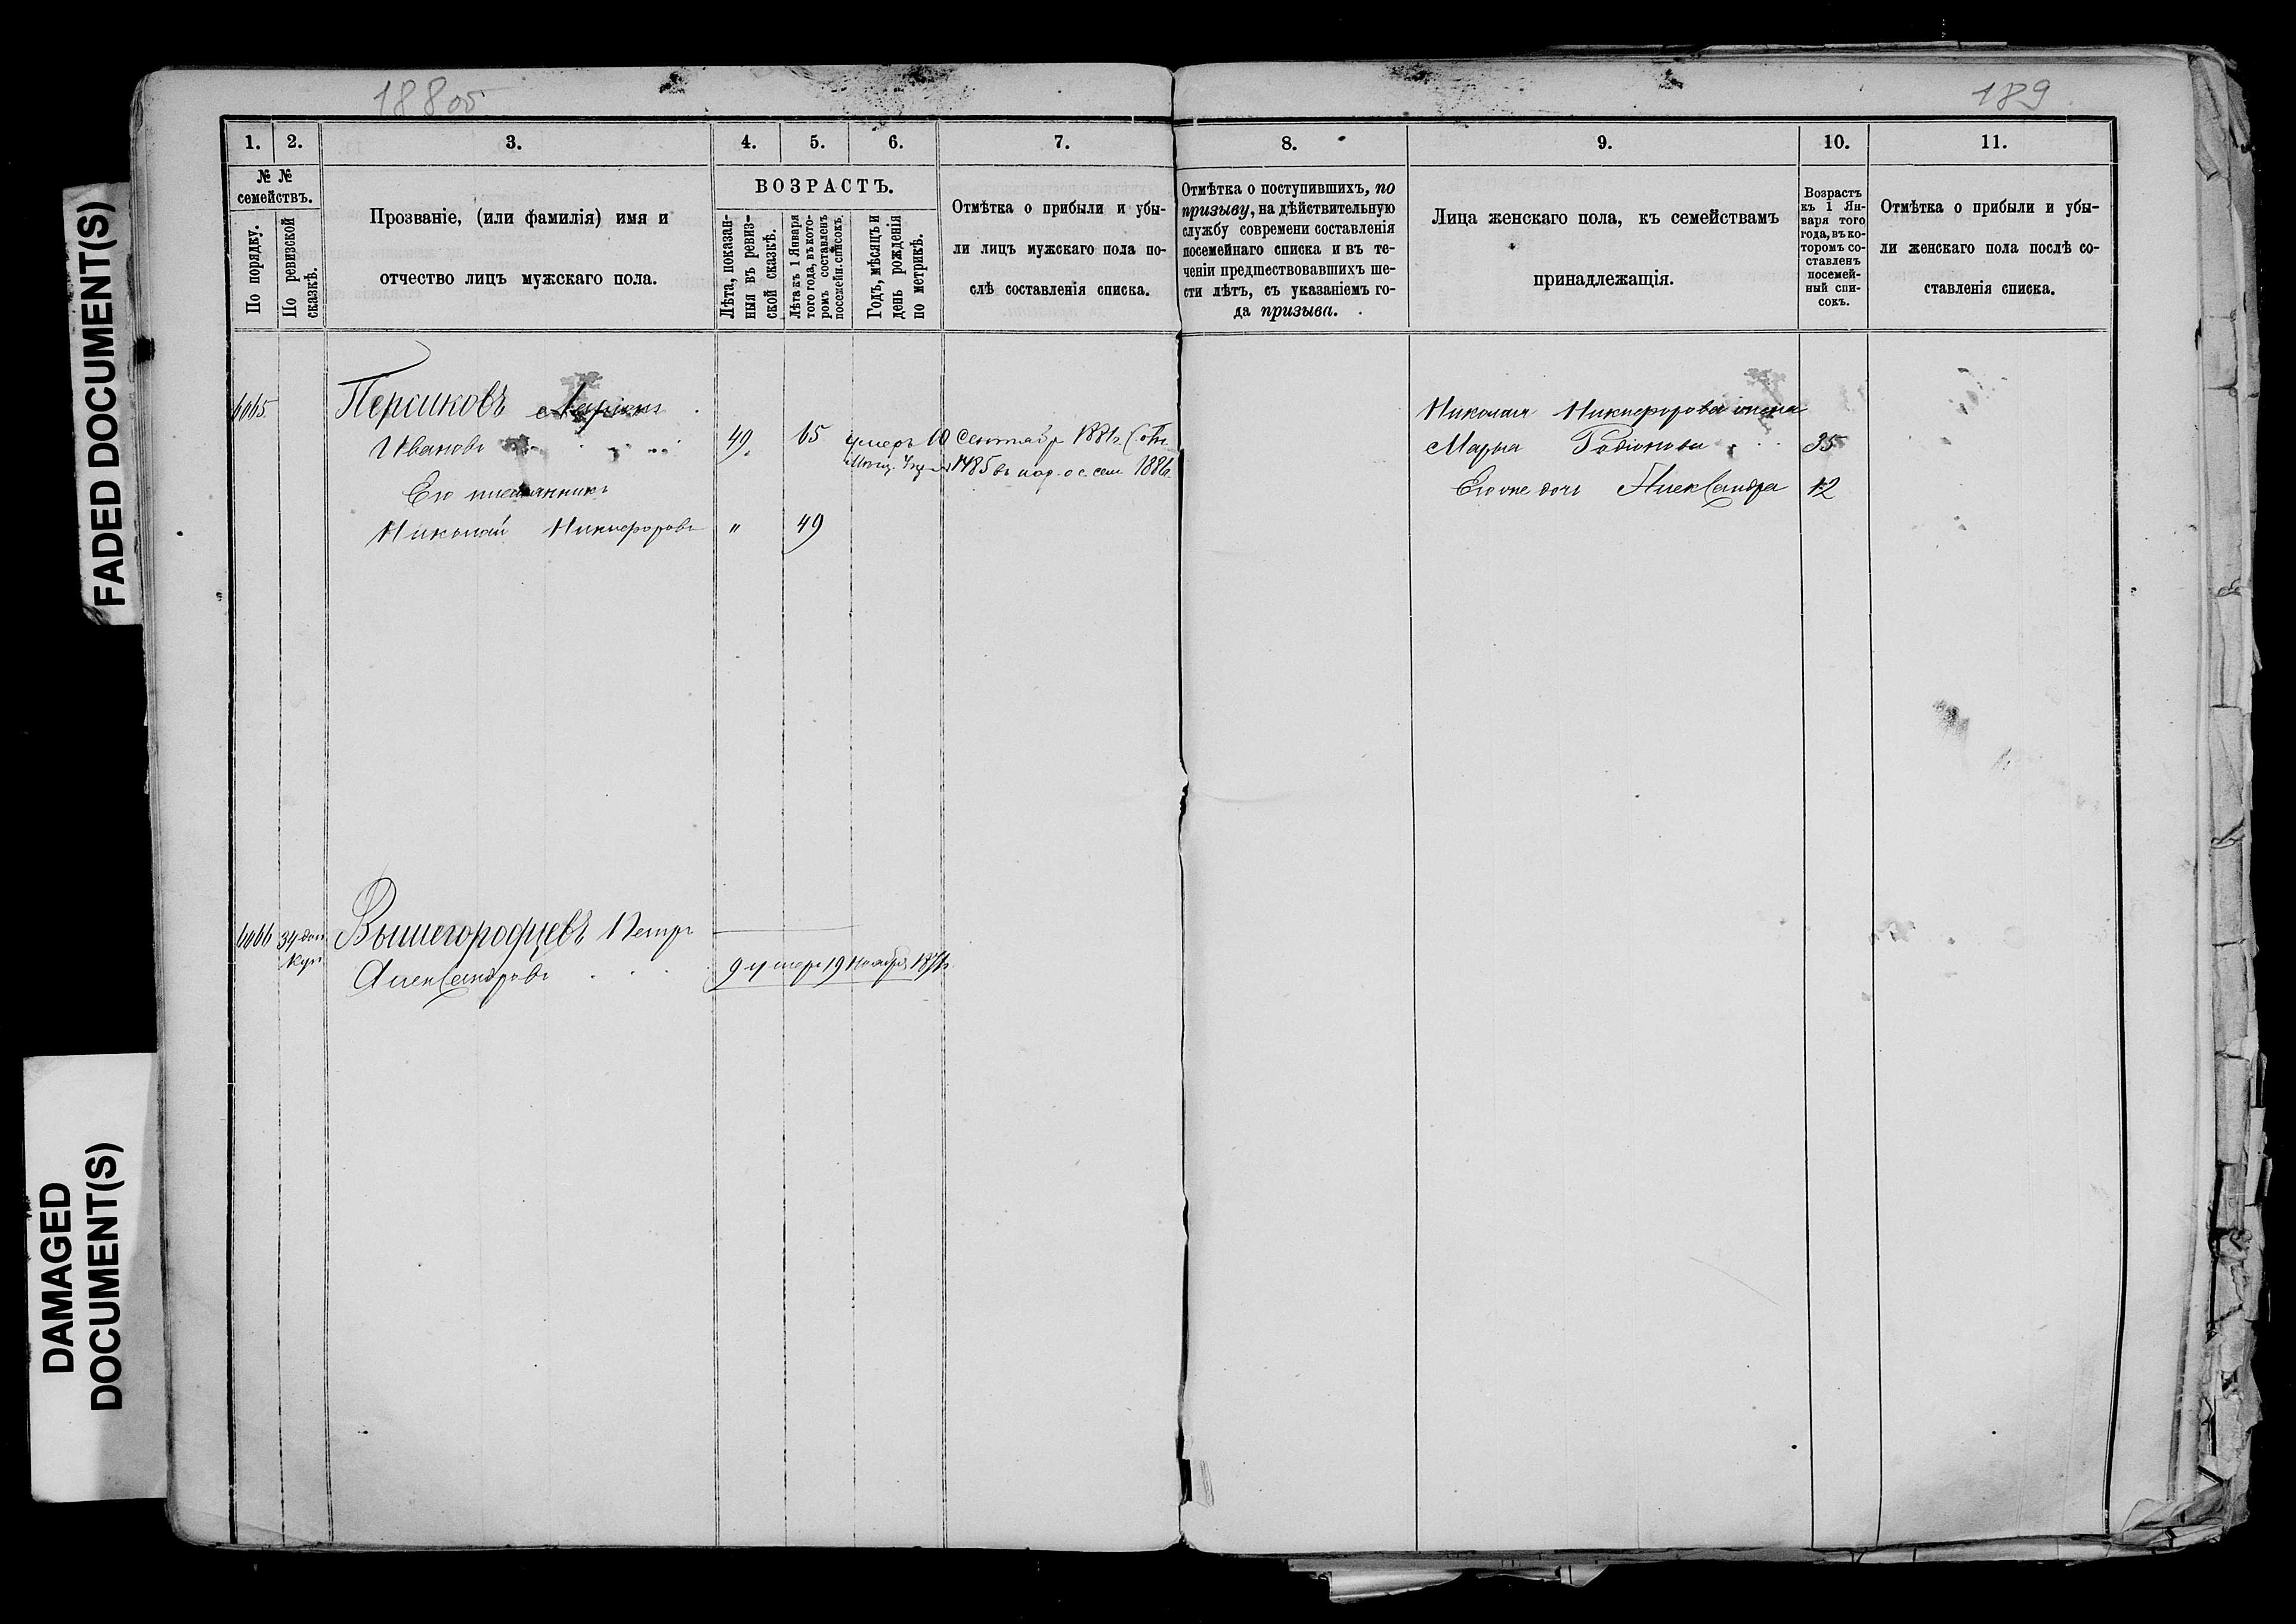 188об
189
FADED DOCUMENT(S)
DAMAGED
DOCUMENT(S)
1. 2. 3. 4. 5. 6. 7. 8. 9. 10. 11.
№ №
семействъ.
По порядку.
По ревизской
сказкѣ.
Прозваніе, (или фамилія) имя и
отчество лицъ мужскаго пола.
ВОЗРАСТЪ.
Лѣта, показан-
ныя въ ревиз-
ской сказкѣ.
Лѣта къ 1 Января
того года, въ кото-
ромъ составленъ
посемейн. списокъ.
Годъ, мѣсяцъ и
день рожденія
по метрикѣ.
Отмѣтка о прибыли и убы-
ли лицъ мужскаго пола по-
слѣ составленія списка.
Отмѣтка о поступившихъ, по
призыву, на дѣйствительную
службу современи составленія
посемейнаго списка и въ те-
ченіи предшествовавшихъ ше-
сти лѣтъ, съ указаніемъ го-
да призыва.
Лица женскаго пола, къ семействамъ
принадлежащія.
Возрастъ
къ 1 Ян-
варя того
года, въ ко-
торомъ со-
ставленъ
посемей-
ный спи-
сокъ.
Отмѣтка о прибыли и убы-
ли женскаго пола послѣ со-
ставленія списка.
6065 Персиковъ Ларіонъ
Ивановъ 49. 65 умеръ 10 Сентября 1881г.
1485 въ 1886
Его племянникъ
Николай Никифоровъ " 49
Николая Никифорова жена
Марья Родіонова 35
Его же дочь Александра 12
6066 34 доп. Вышегородцевъ Петръ
куп.
Александровъ 9 умеръ 19 Ноября